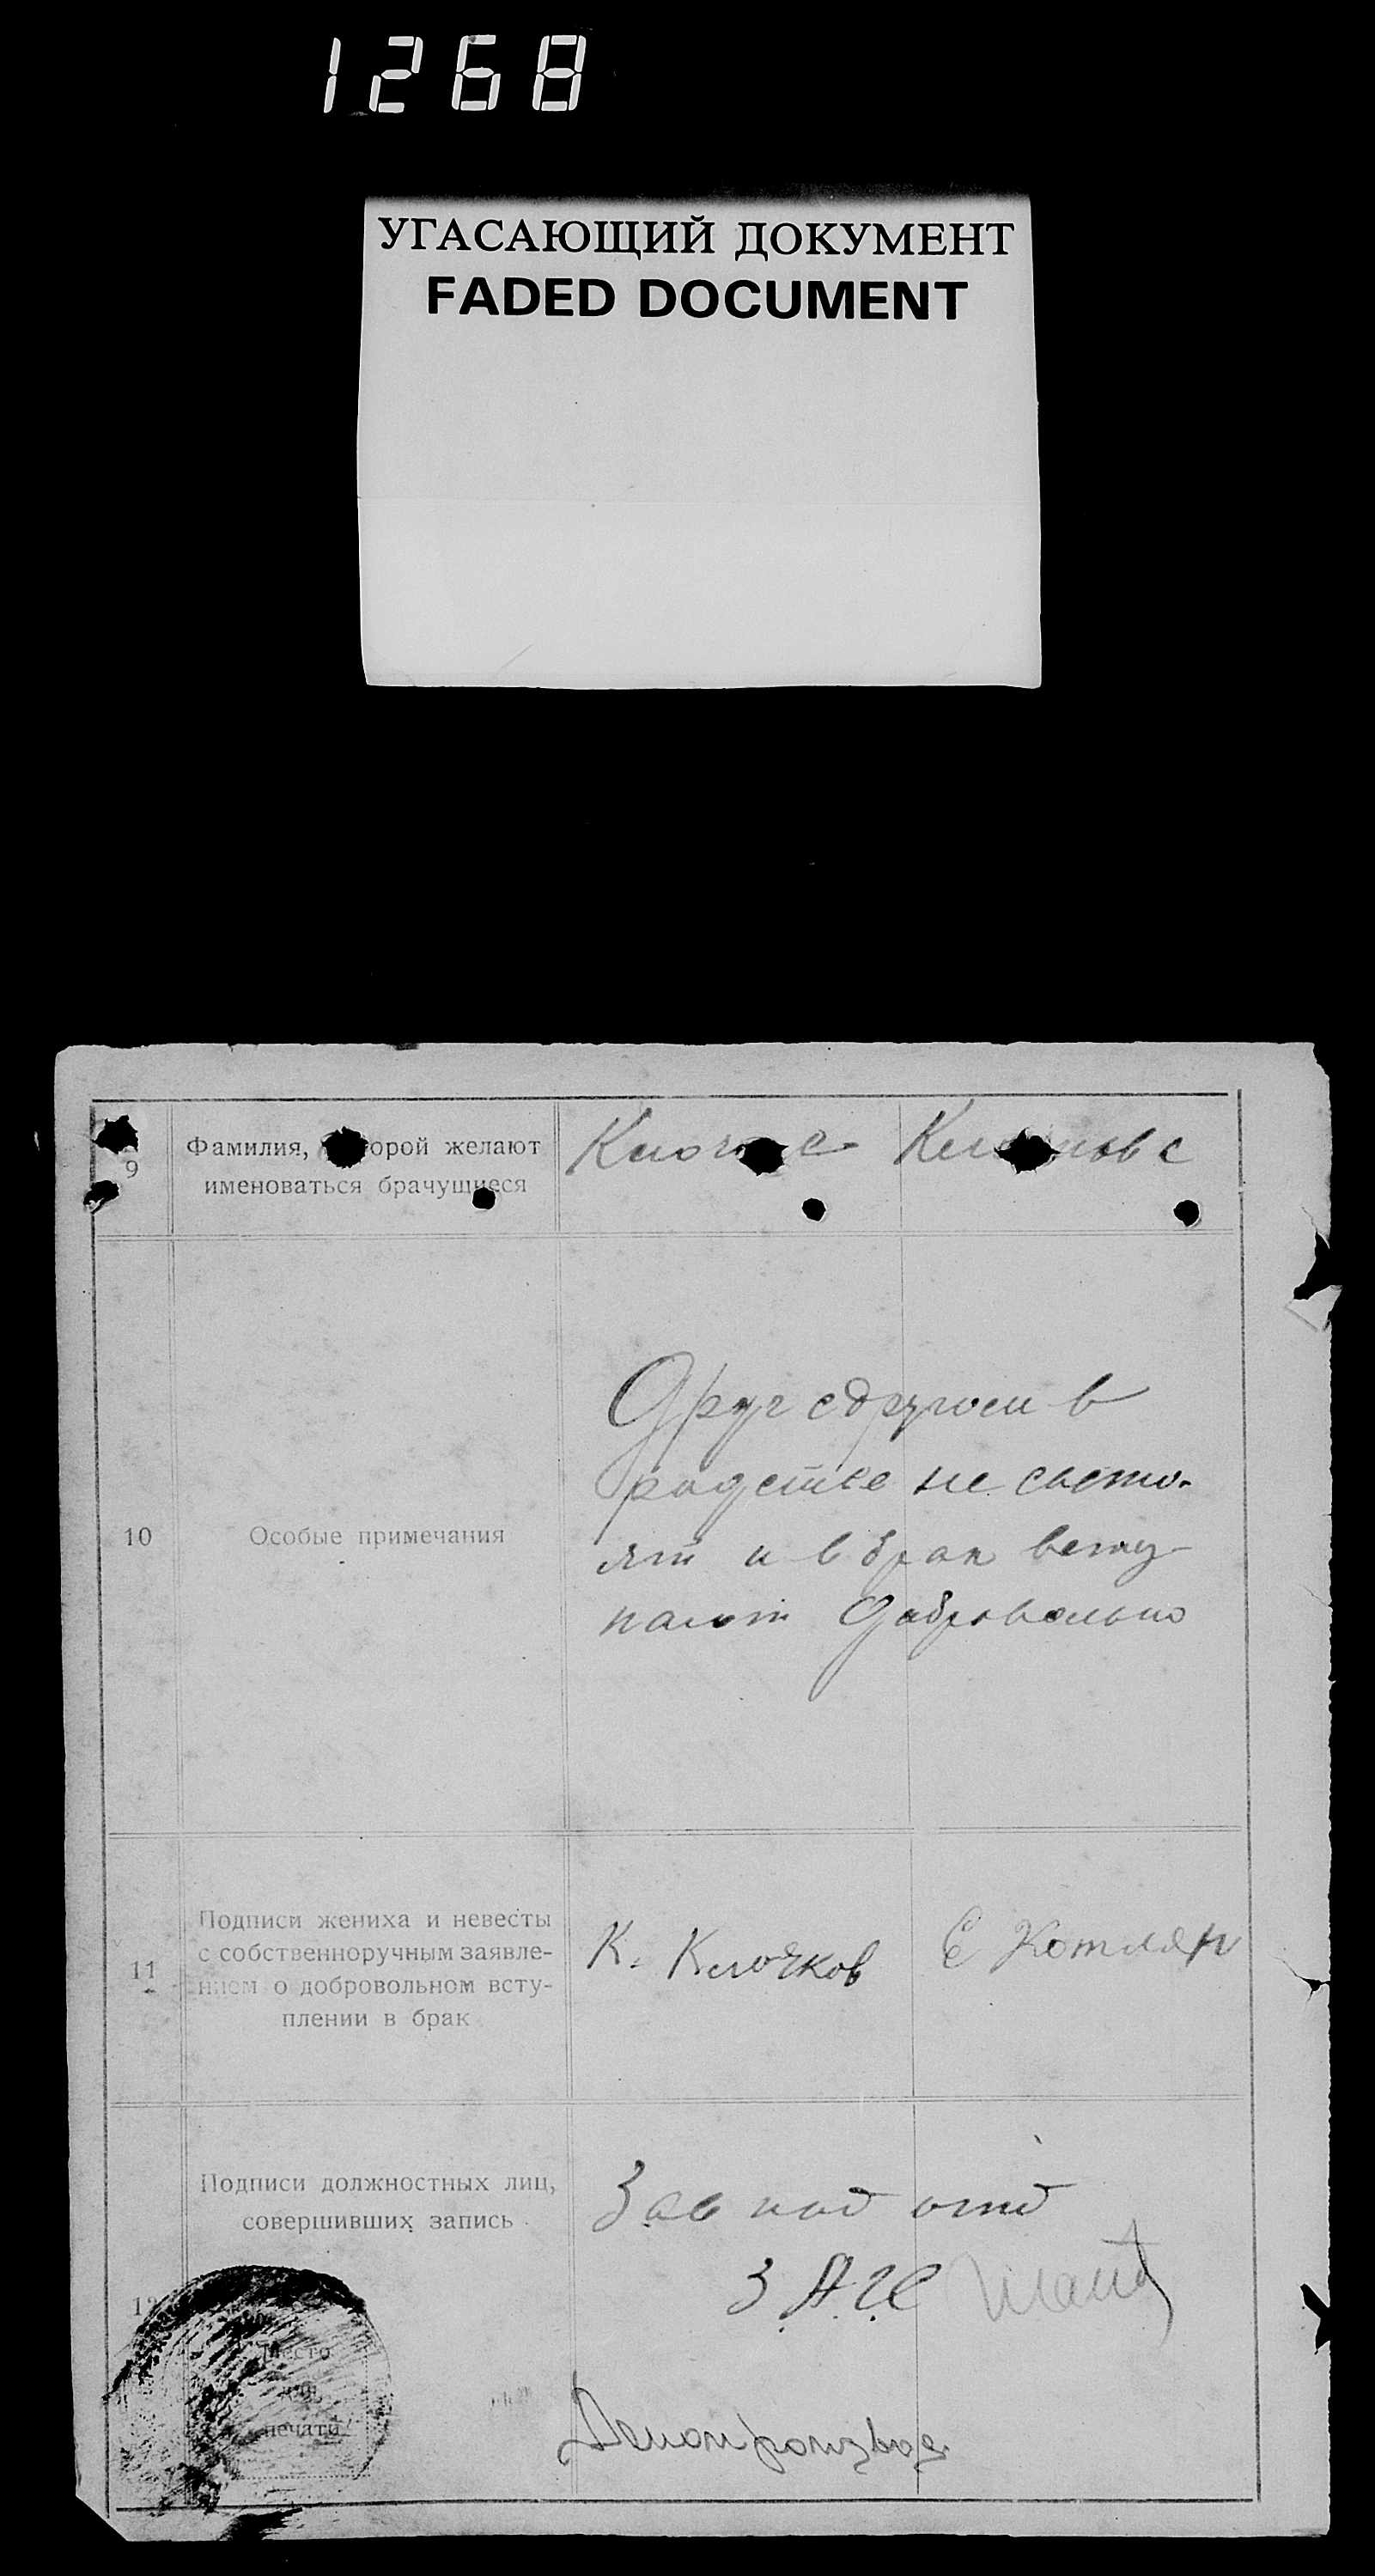 1268
УГАСАЮЩИЙ ДОКУМЕНТ
FADED DOCUMENT
9
Фамилия, которой желают
именоваться брачущиеся
10
Особые примечания
Друг с другом в
родстве не состо-
ят и в брак всту-
пают добровольно
11
Подписи жениха и невесты
с собственноручным заявле-
нием о добровольном всту-
плении в брак
К. Клочков
Е Котляр
Подписи должностных лиц,
совершивших запись
Зав под отд
ЗАГС
12
Место
для
печати
Делопроизвод